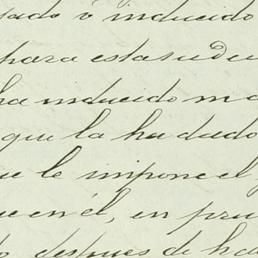 sado ó inducido
para esta su de
ha inducido m
que la ha dado
le impone el
en él, en pru
despues de ha